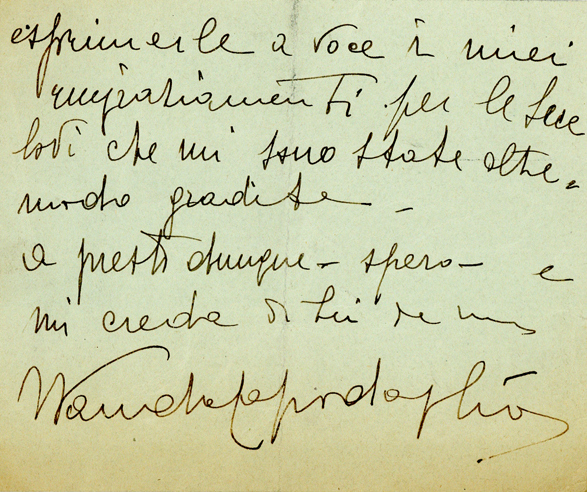 esprimerle a voce i miei
ringraziamenti per le sue
lodi che mi sono state oltre=
modo gradite -
a presto dunque - spero - e
mi creda di Lei dev.ma
Wanda Capodaglio